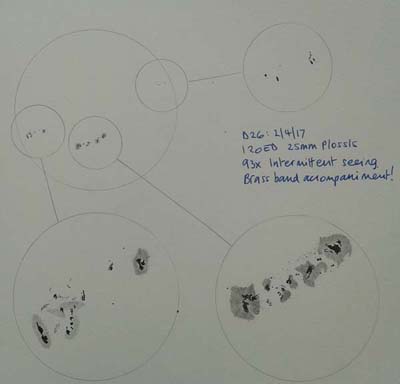 D26: 2/4/17
120ED 25mm Plossls
93x Intermittent seeing
Brass band accompaniment!